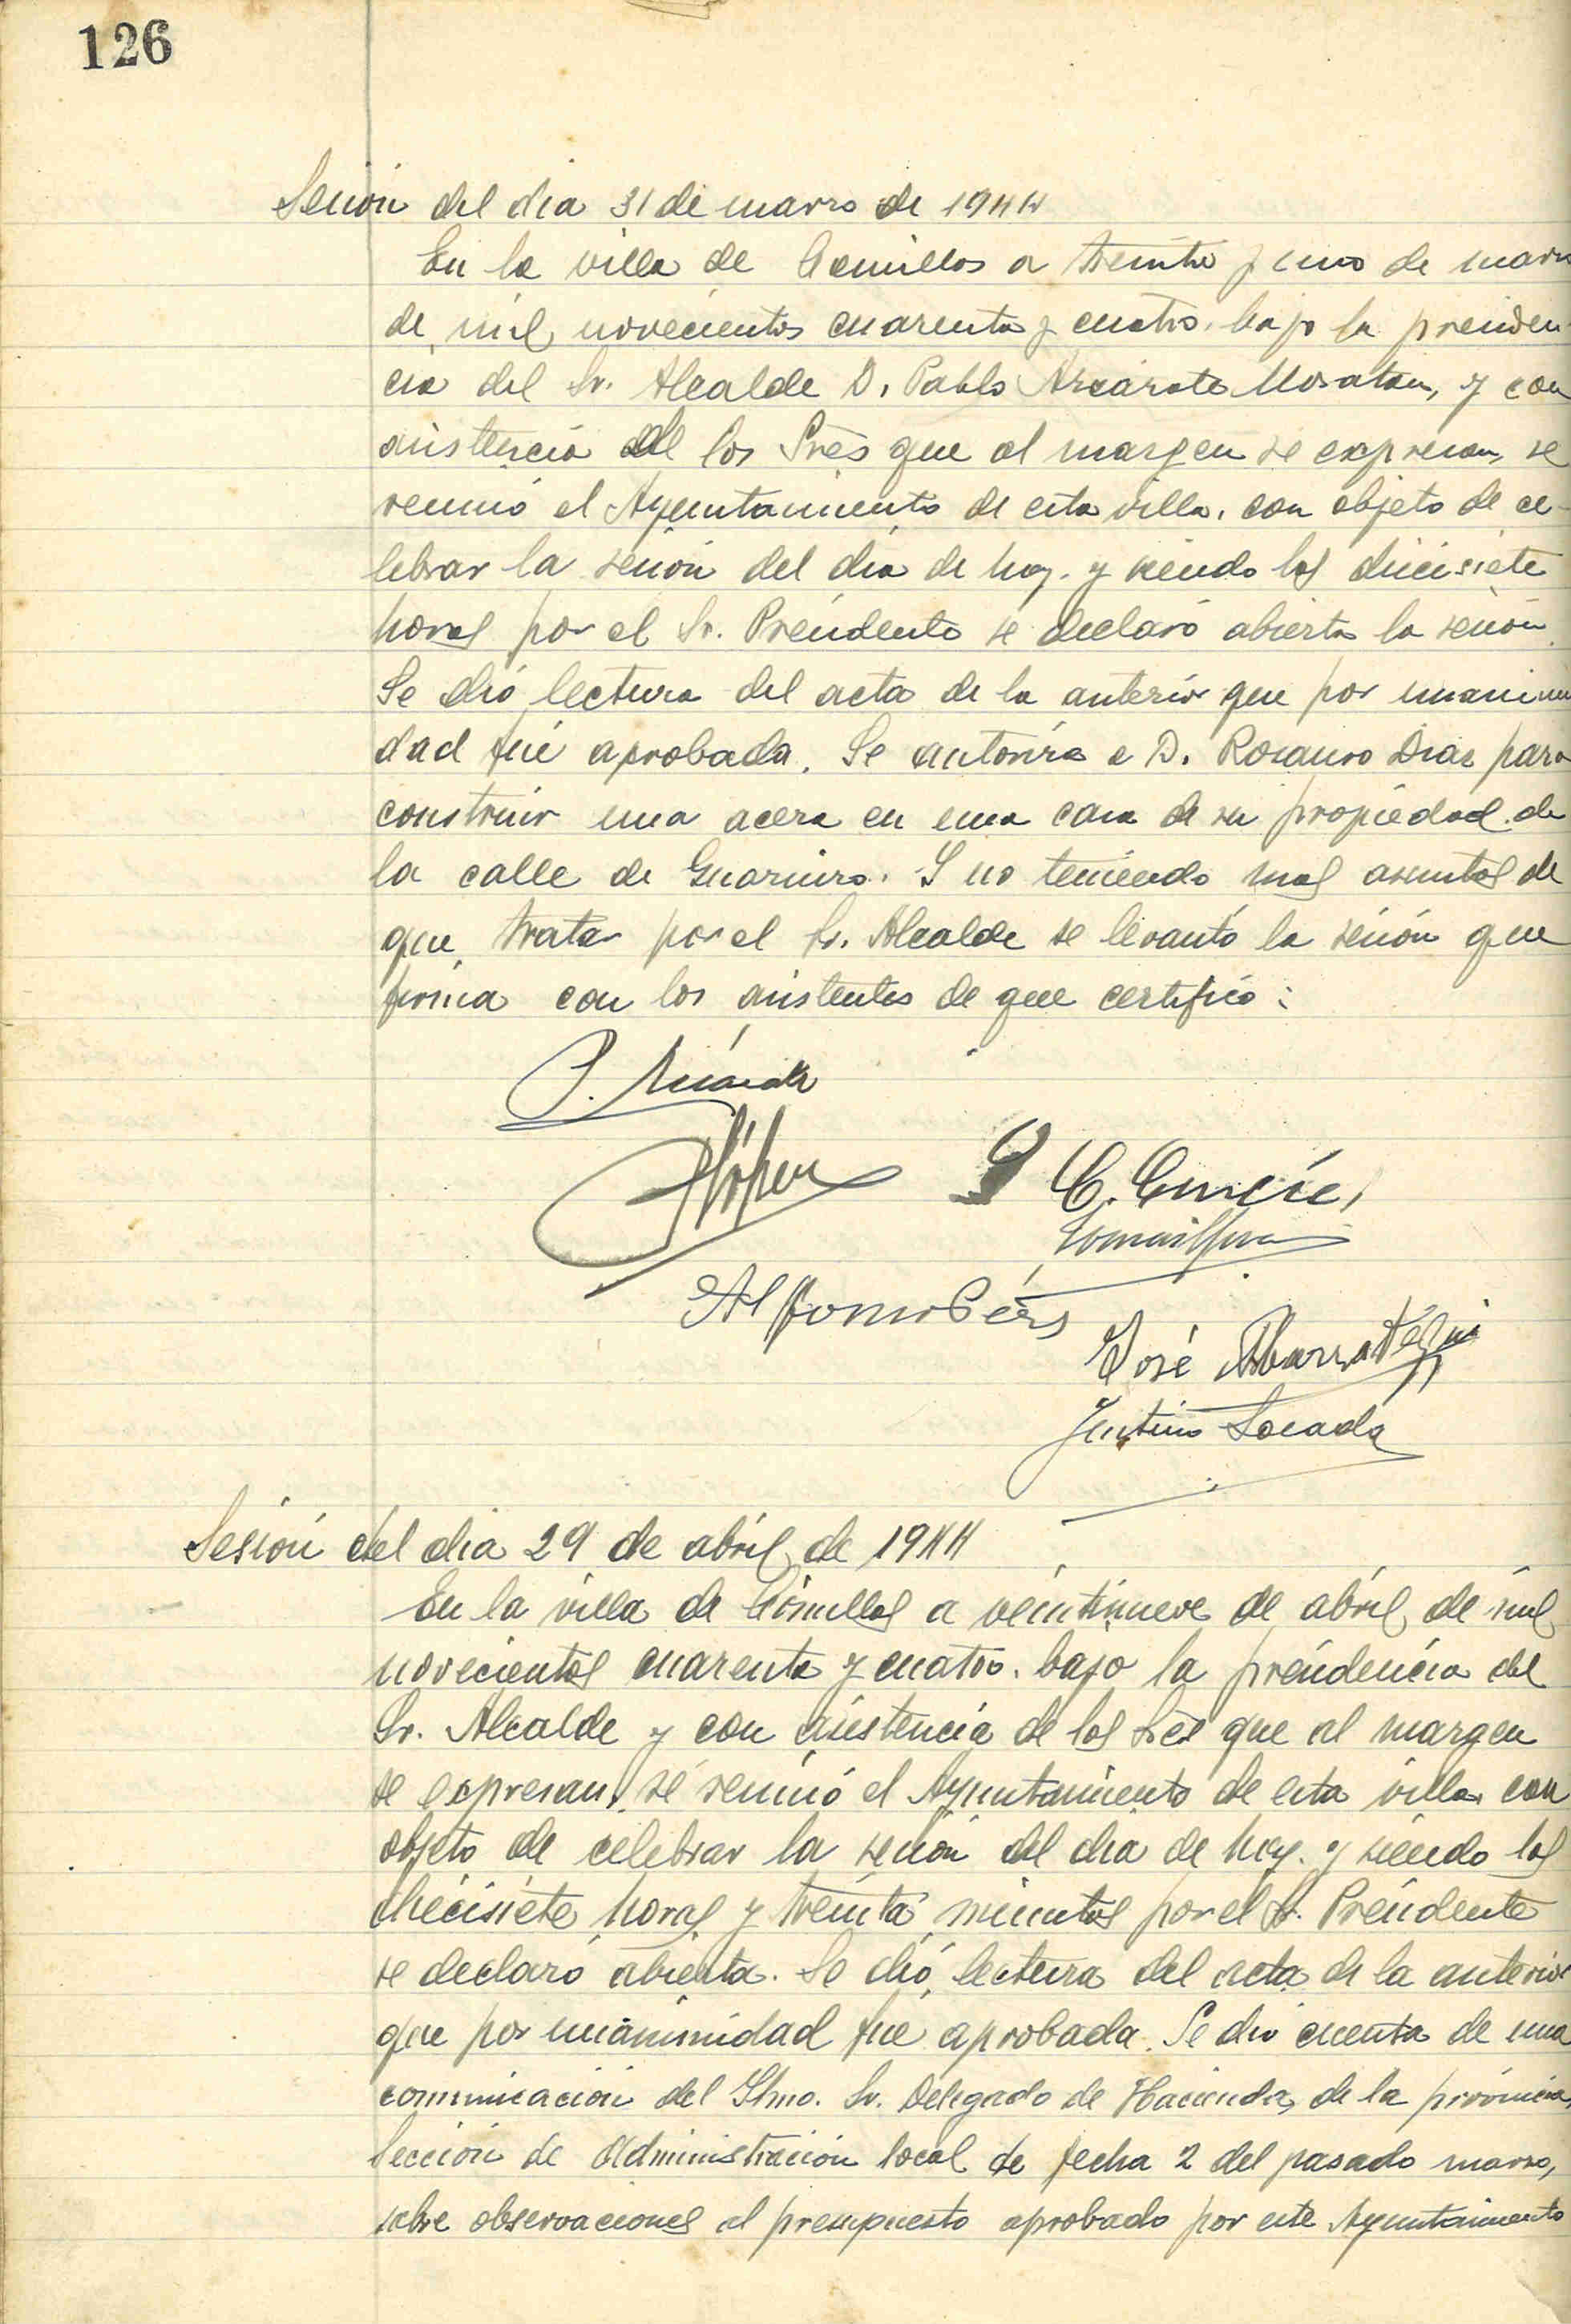 126
Sesión del dia 31 de marzo de 1944
En la villa de Comillas a treinta y uno de marzo
de mil novecientos cuarenta y cuatro. bajo la presiden-
cia del Sr. Alcalde D. Pablo Azcárate, y con
asistencia de los Srès que al margen se expresan, se
reunió el Ayuntamiento de esta villa, con objeto de ce-
lebrar la sesión del día de hoy. y siendo las diecisiete
horas por el Sr. Presidente se declaró abierta la sesión.
Se dió lectura del acta de la anterior que por unanimi
dad fué aprobada. Se autoriza a D. Rosauro Diaz para
construir una acera en una casa de su propiedad de
la calle de. Y no teniendo mas asuntos de
que tratar por el Sr. Alcalde se levantó la sesión que
firma con los asistentes de que certifico:
P. Azcárate
López
C. García
Alfonso Pérez
José Abarrategui
Justino Losada
Sesión del dia 29 de abril de 1944
En la villa de Comillas a veintinueve de abril de mil
novecientos cuarenta y cuatro. bajo la presidencia del
Sr. Alcalde y con asistencia de los Srès que al margen
se expresan, se reunió el Ayuntamiento de esta villa con
objeto de celebrar la sesión del dia de hoy. y siendo las
diecisiete horas y treinta minutos por el Sr. Presidente
se declaró abierta. Se dió lectura del acta de la anterior
que por unanimidad fué aprobada. Se dió cuenta de una
comunicación del Ilmo. Sr. Delegado de Hacienda de la provincia,
Sección de Administración local de fecha 2 del pasado marzo,
sobre observaciones al presupuesto aprobado por este Ayuntamiento